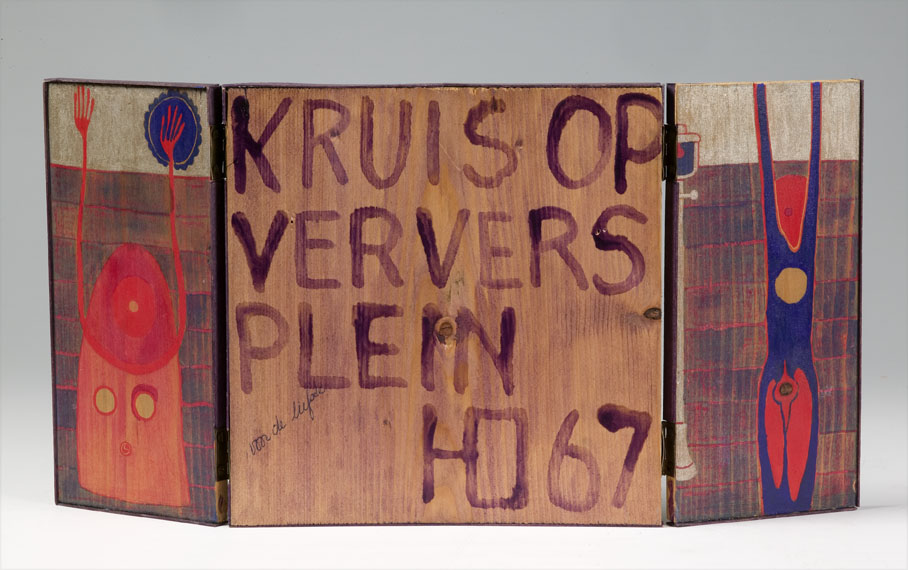 KRUIS OP
VERVERS
PLEIN
voor de liefste
HD 67